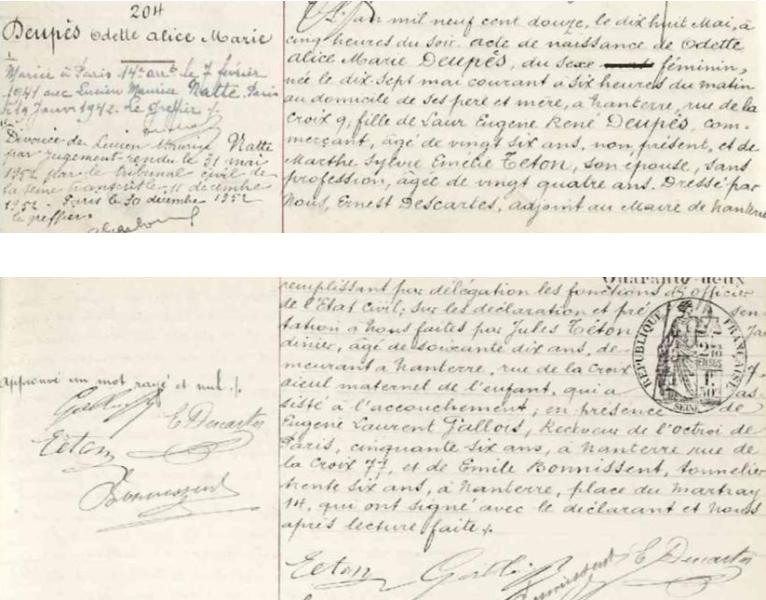 204
Deupès Odette Alice Marie
Mariée à Paris 14e arrt le 7 février
1941 avec Lucien Maurice Natte. Paris
le 19 Janvr 1942. Le greffier ./.
Divorcée de Lucien Maurice Natte
par jugement rendu le 31 mai
1952 par le tribunal civil de
la Seine transcrit le 11 décembre
1952. Paris le 30 décembre 1952
le greffier.
L'an mil neuf cent douze, le dix huit Mai, à
cinq heures du soir. acte de naissance de Odette
Alice Marie Deupès, du sexe féminin,
née le dix sept mai courant à six heures du matin
au domicile de ses père et mère, à Nanterre, rue de la
Croix 9, fille de Laur Eugène René Deupès, com-
merçant, âgé de vingt six ans, non présent, et de
Marthe Sylvie Emélie Teton, son épouse, sans
profession, âgée de vingt quatre ans. Dressé par
Nous, Ernest Descartes, adjoint au Maire de Nanterre
Quarante deux
remplissant par délégation les fonctions d'officier
de l'Etat Civil; sur les déclaration et pré sen
tation à Nous faites par Jules Teton Jar
dinier, âgé de soixante dix ans, de-
meurant à Nanterre, rue de la Croix 7,
aïeul maternel de l'enfant, qui a as-
sisté à l'accouchement; en présence de
Eugène Laurent Gallois, Receveur de l'octroi de
Paris, cinquante six ans, à Nanterre rue de
la Croix 77, et de Emile Bonnissent, tonnelier
trente six ans, à Nanterre, place du Martray
14, qui ont signé avec le déclarant et Nous
après lecture faite ./.
RÉPUBLIQUE FRANÇAISE
SEINE
Approuvé un mot rayé et nul ./.
E Descartes
Teton
Bonnissent
Teton
Bonnissent
E Descartes